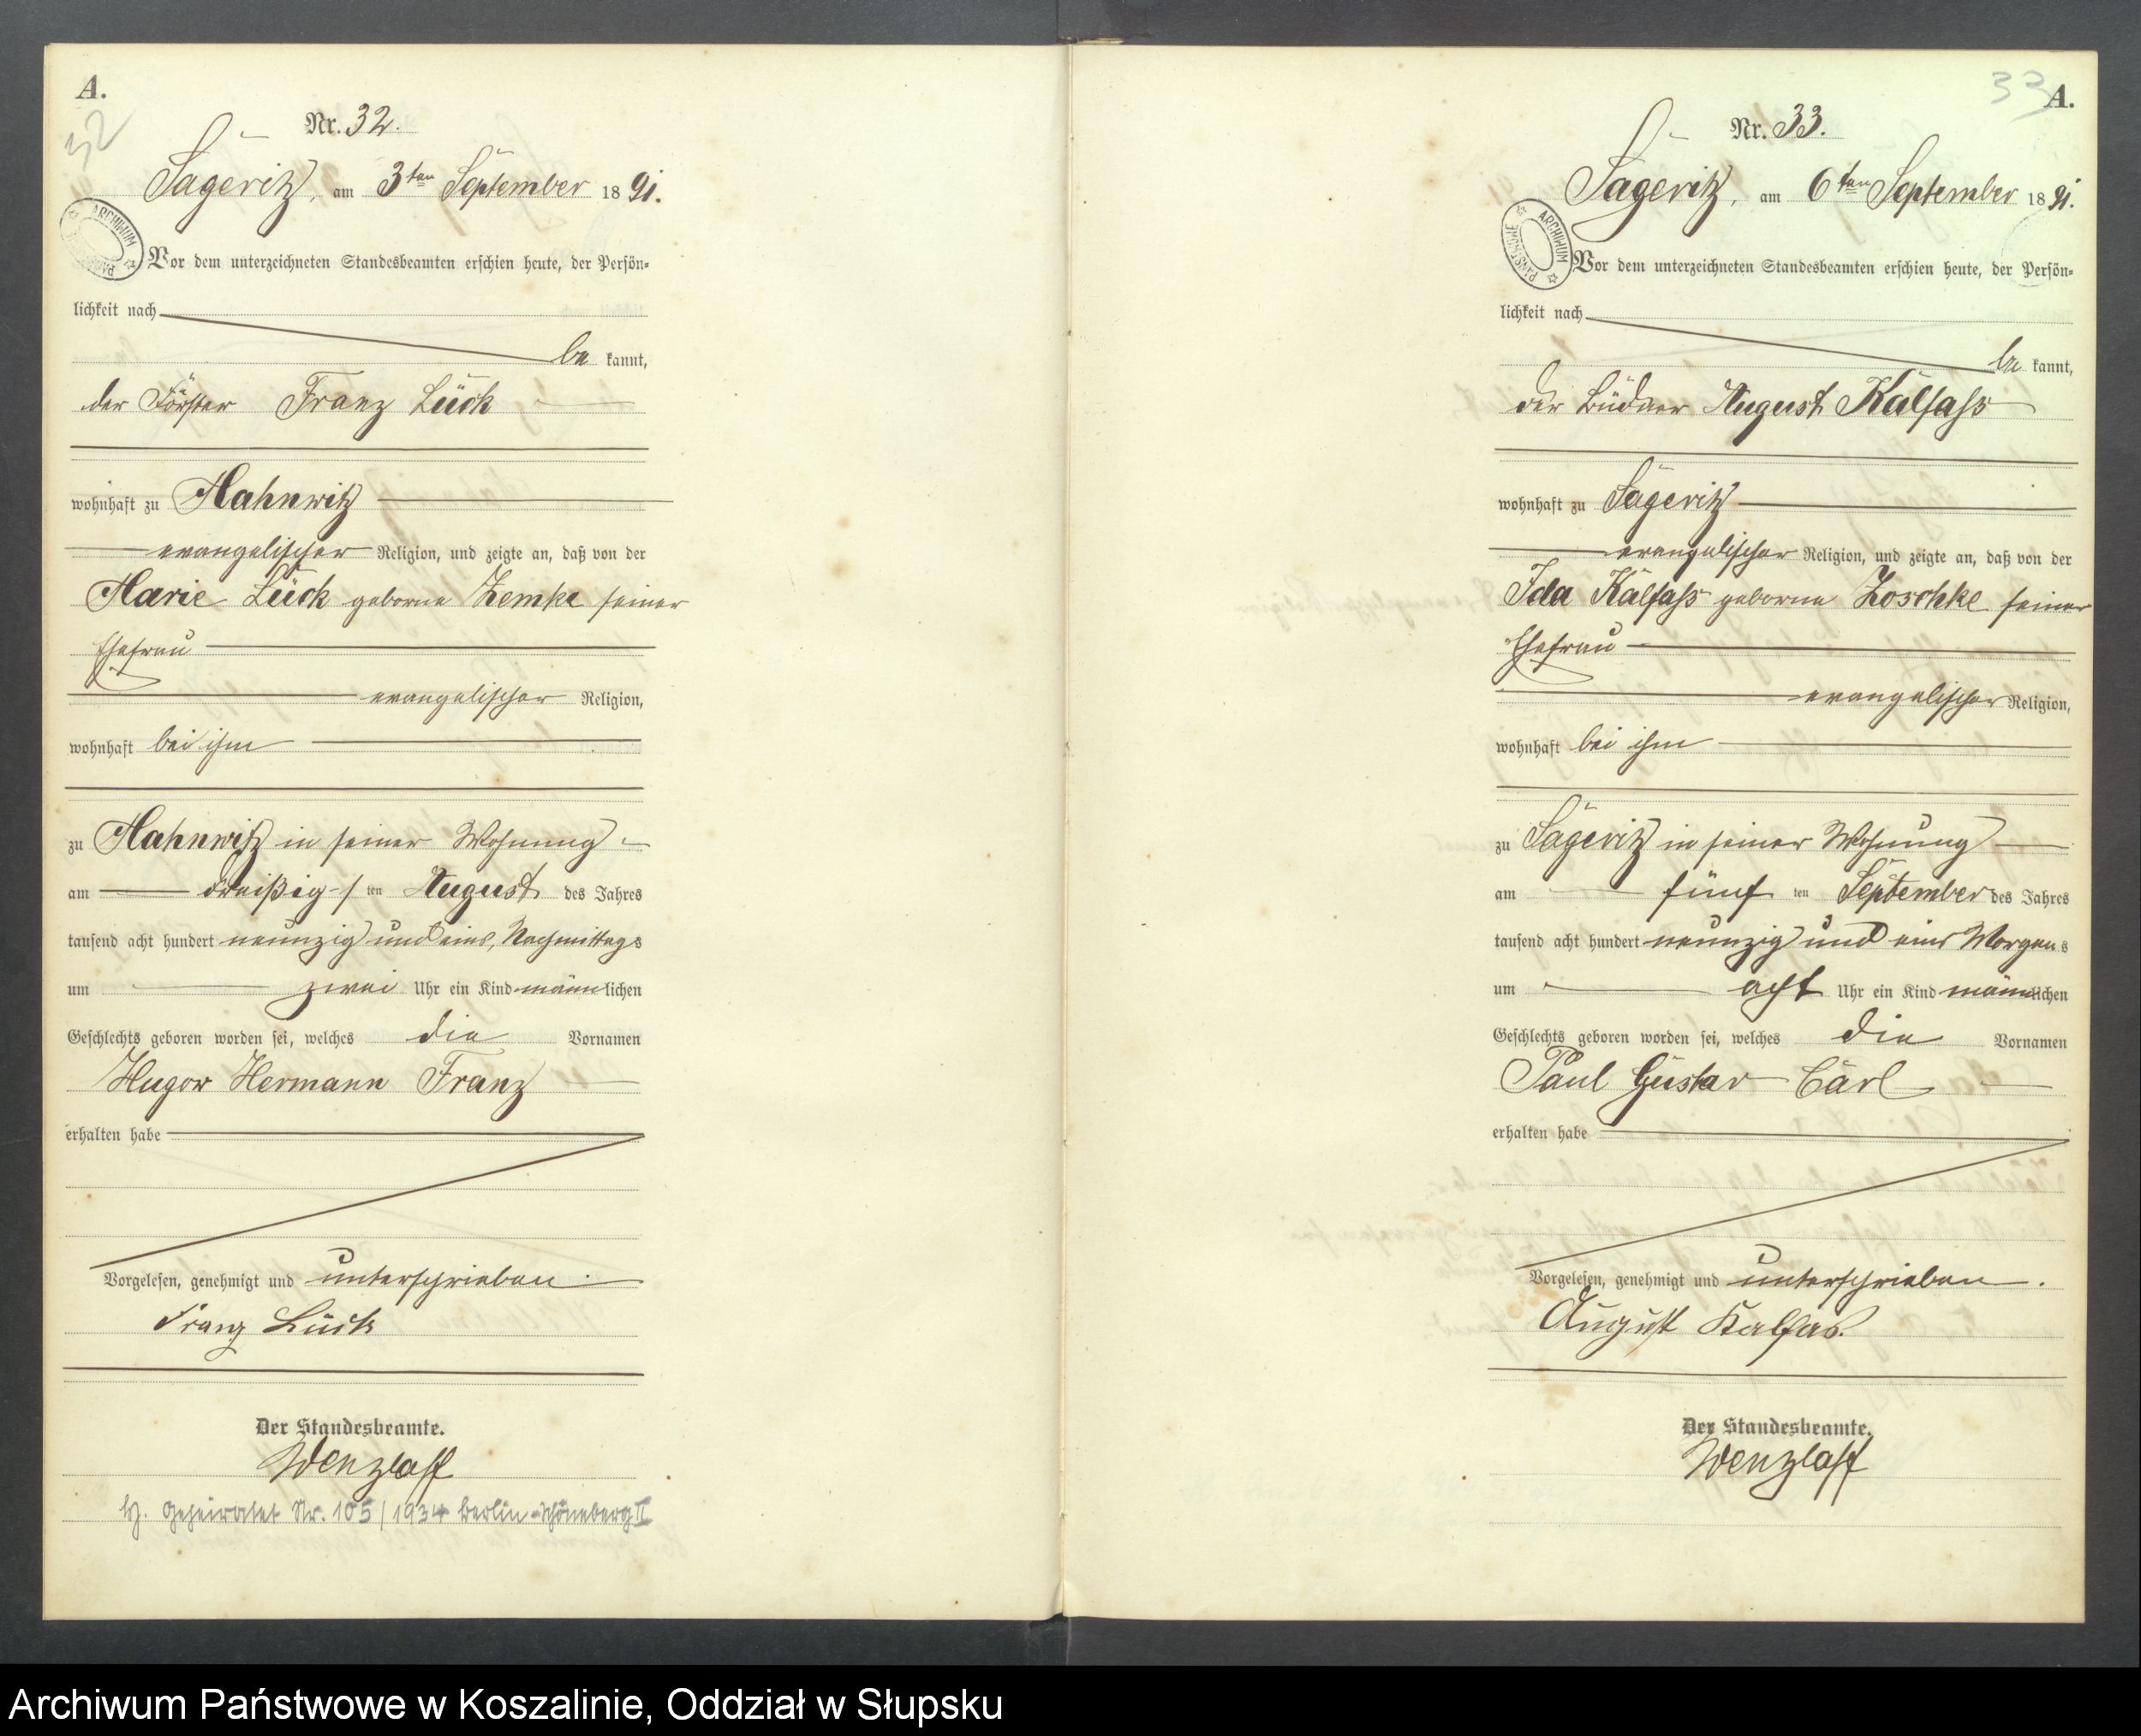 A.
32
Nr. 32.
Sageritz, am 3ten September 1891.
ARCHIWUM PAŃSTWOWE
Vor dem unterzeichneten Standesbeamten erschien heute, der Persön-
lichkeit nach
be kannt,
der Förster Franz Lück
wohnhaft zu Mahnwitz
evangelischer Religion, und zeigte an, daß von der
Marie Lück geborne Zemke seiner
Ehefrau
evangelischer Religion,
wohnhaft bei ihm
zu Mahnwitz in seiner Wohnung
am dreißig-/ ten August des Jahres
tausend acht hundert neunzig und eins, Nachmittags
um zwei Uhr ein Kind männlichen
Geschlechts geboren worden sei, welches die Vornamen
Hugo Hermann Franz
erhalten habe
Vorgelesen, genehmigt und unterschrieben.
Franz Lück
Der Standesbeamte.
Wenzlaff
Geheiratet Nr. 105/1934 Berlin-Schöneberg II
33
A.
Nr. 33.
Sageritz, am 6ten September 1891.
ARCHIWUM PAŃSTWOWE
Vor dem unterzeichneten Standesbeamten erschien heute, der Persön-
lichkeit nach
be kannt,
der Büdner August Kalfass
wohnhaft zu Sageritz
evangelischer Religion, und zeigte an, daß von der
Ida Kalfass geborne Zoschke seiner
Ehefrau
evangelischer Religion,
wohnhaft bei ihm
zu Sageritz in seiner Wohnung
am fünf ten September des Jahres
tausend acht hundert neunzig und eins Morgens
um acht Uhr ein Kind männlichen
Geschlechts geboren worden sei, welches die Vornamen
Paul Gustav Carl
erhalten habe
Vorgelesen, genehmigt und unterschrieben.
August Kalfas.
Der Standesbeamte.
Wenzlaff
Archiwum Państwowe w Koszalinie, Oddział w Słupsku